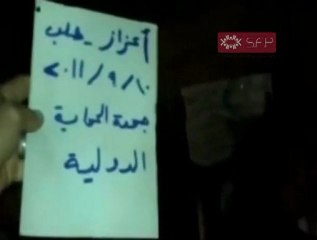 أعزاز - حلب
٢٠١١/٩/١٠
جمعة الحماية
الدولية
S.F.P